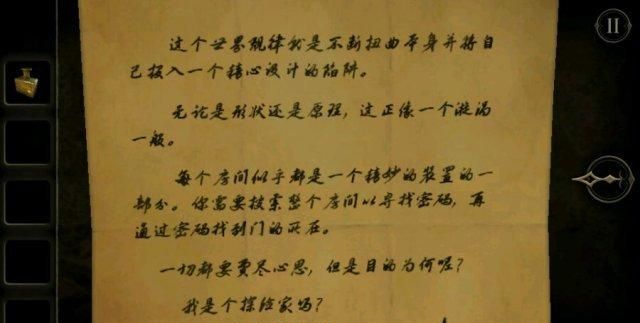 这个世界规律就是不断扭曲本身并将自
己投入一个精心设计的陷阱。
无论是形状还是原理，这正像一个漩涡
一般。
每个房间似乎都是一个精妙的装置的一
部分。你需要搜索整个房间以寻找密码，再
通过密码找到门的所在。
一切都要费尽心思，但是目的为何呢？
我是个探险家吗？